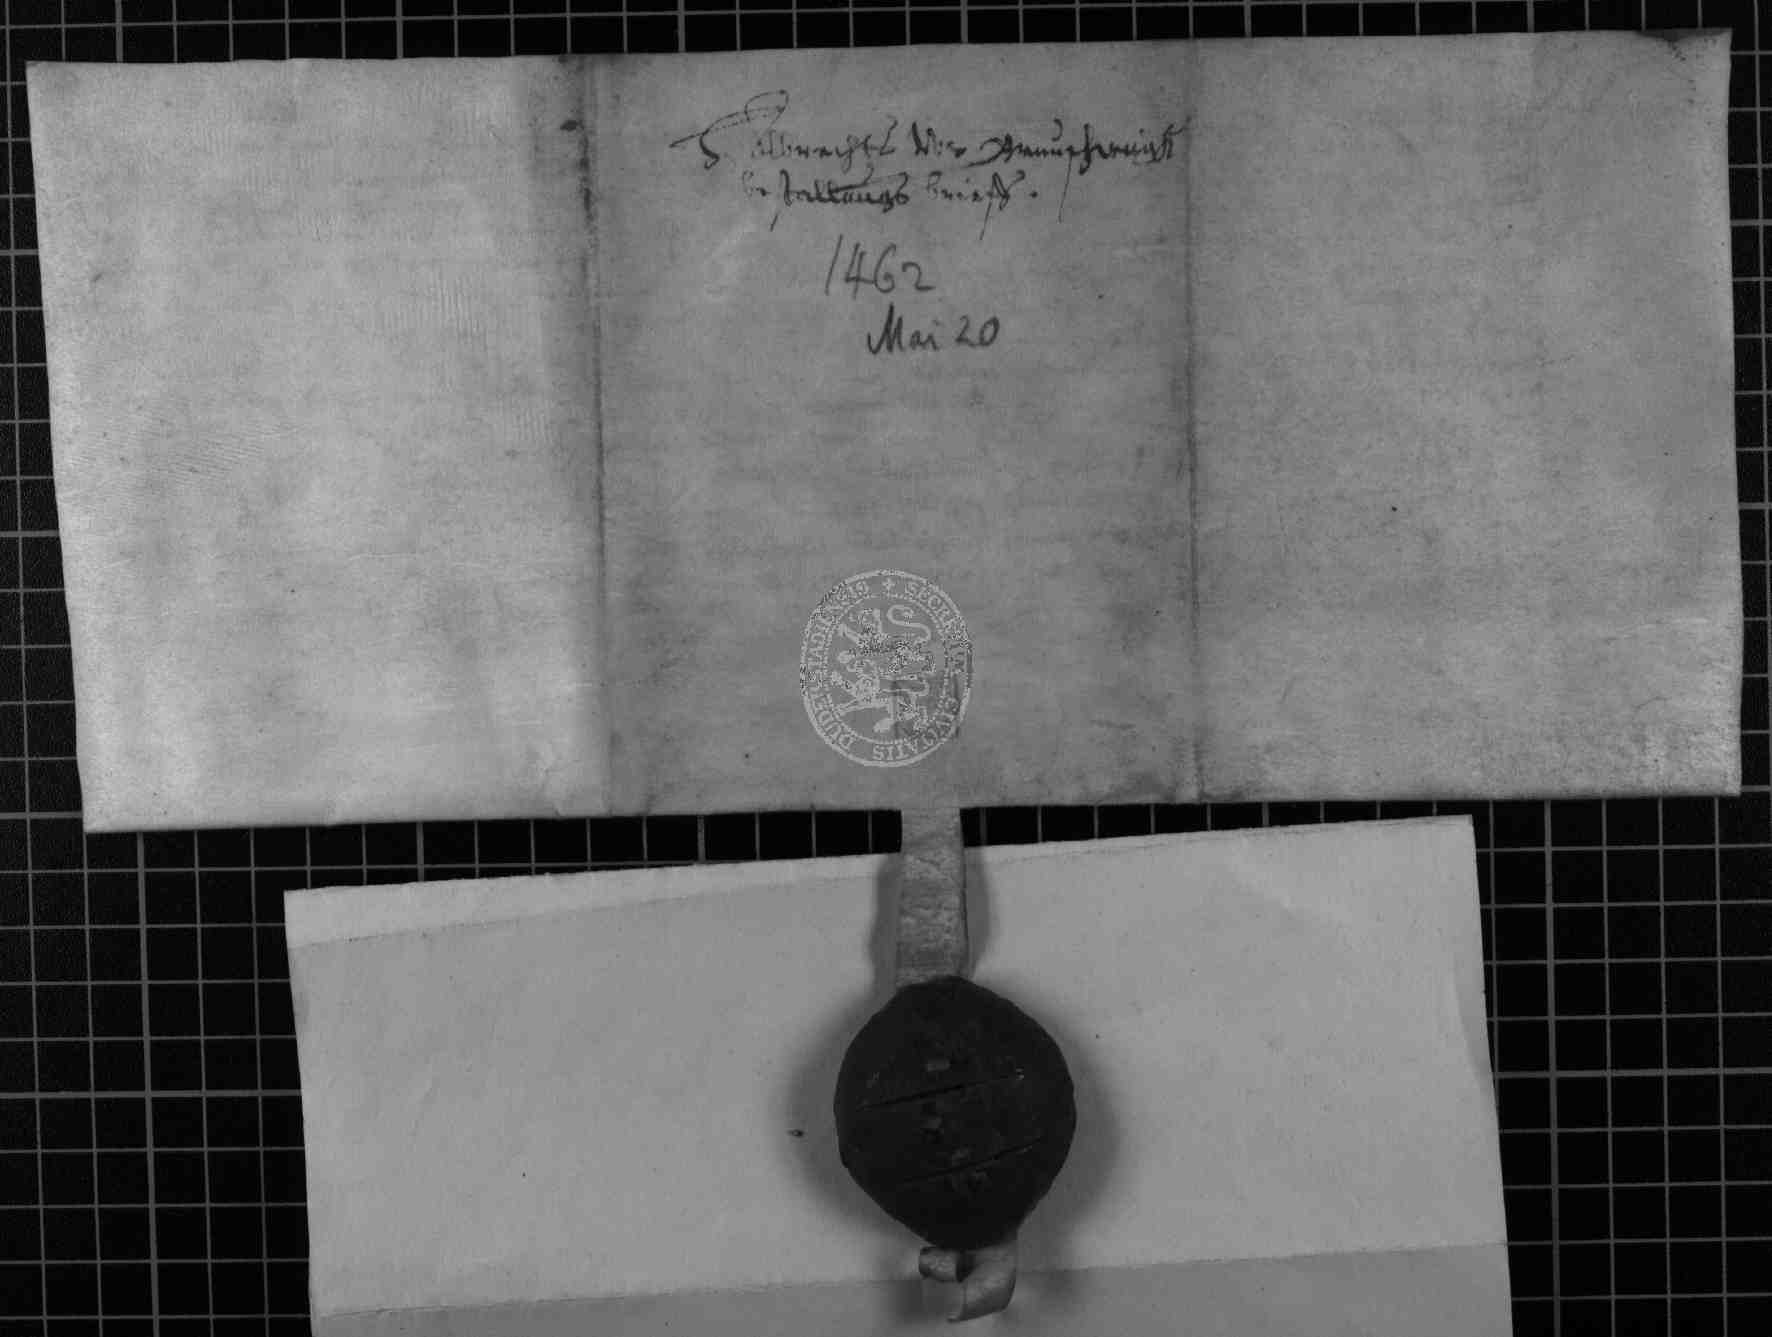 H. Albrechts von Braunschweigk
bestallungs brieff.
1462
Mai 20
+ SECRETUM CIVITATIS DUDERSTADIENSIS